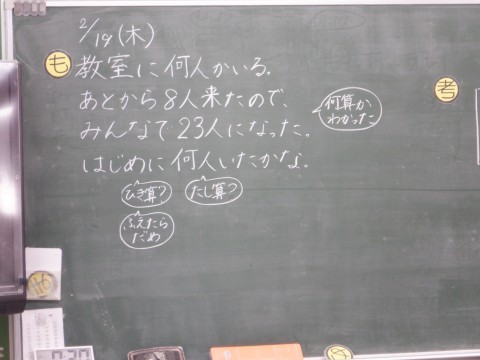 2/19(木)
も 教室に何人かいる。
あとから8人来たので、
みんなで23人になった。
はじめに何人いたかな。
何算か
わかった
考
ひき算?
たし算?
ふえたら
だめ